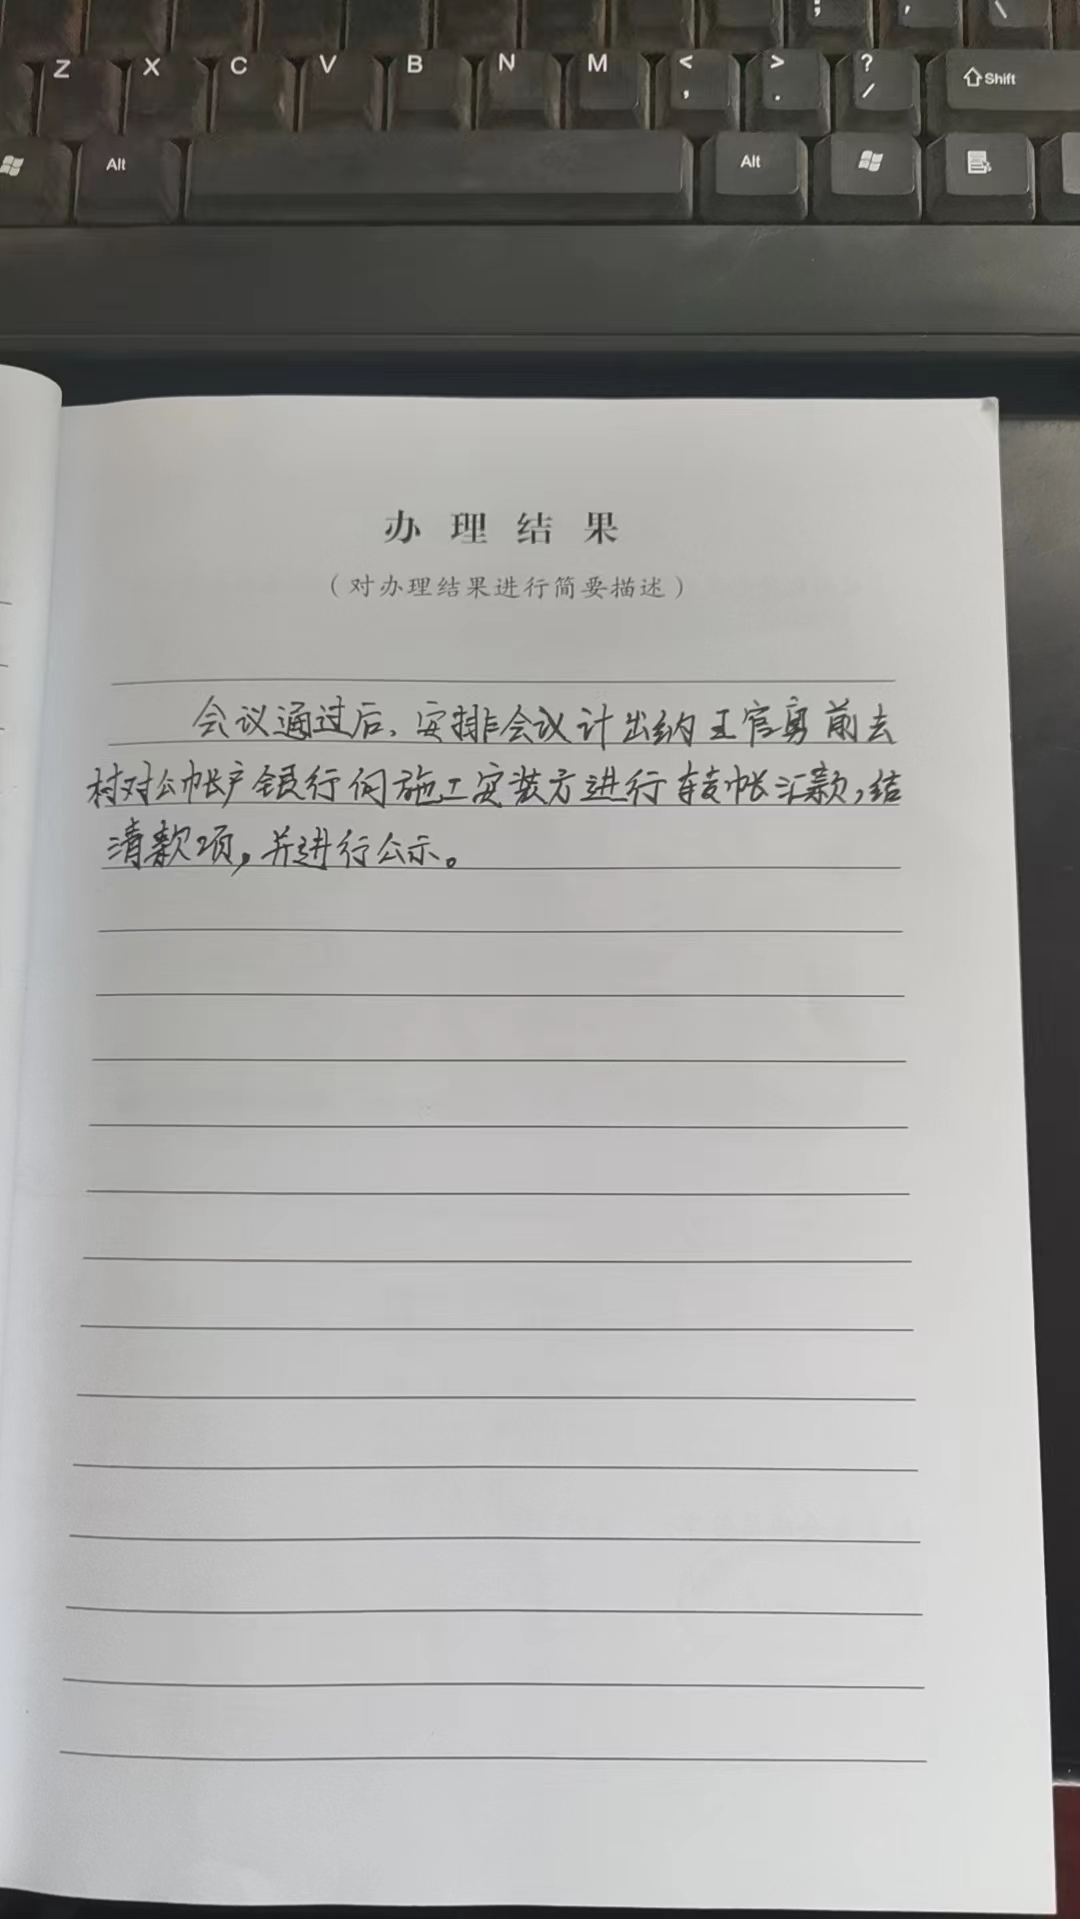 ; , \
Z X C V B N M < , > . ? / Shift
Alt Alt
办理结果
（对办理结果进行简要描述）
会议通过后、安排会议计出纳王官勇前去
村对公帐户银行向施工安装方进行转帐汇款,结
清款项,并进行公示。